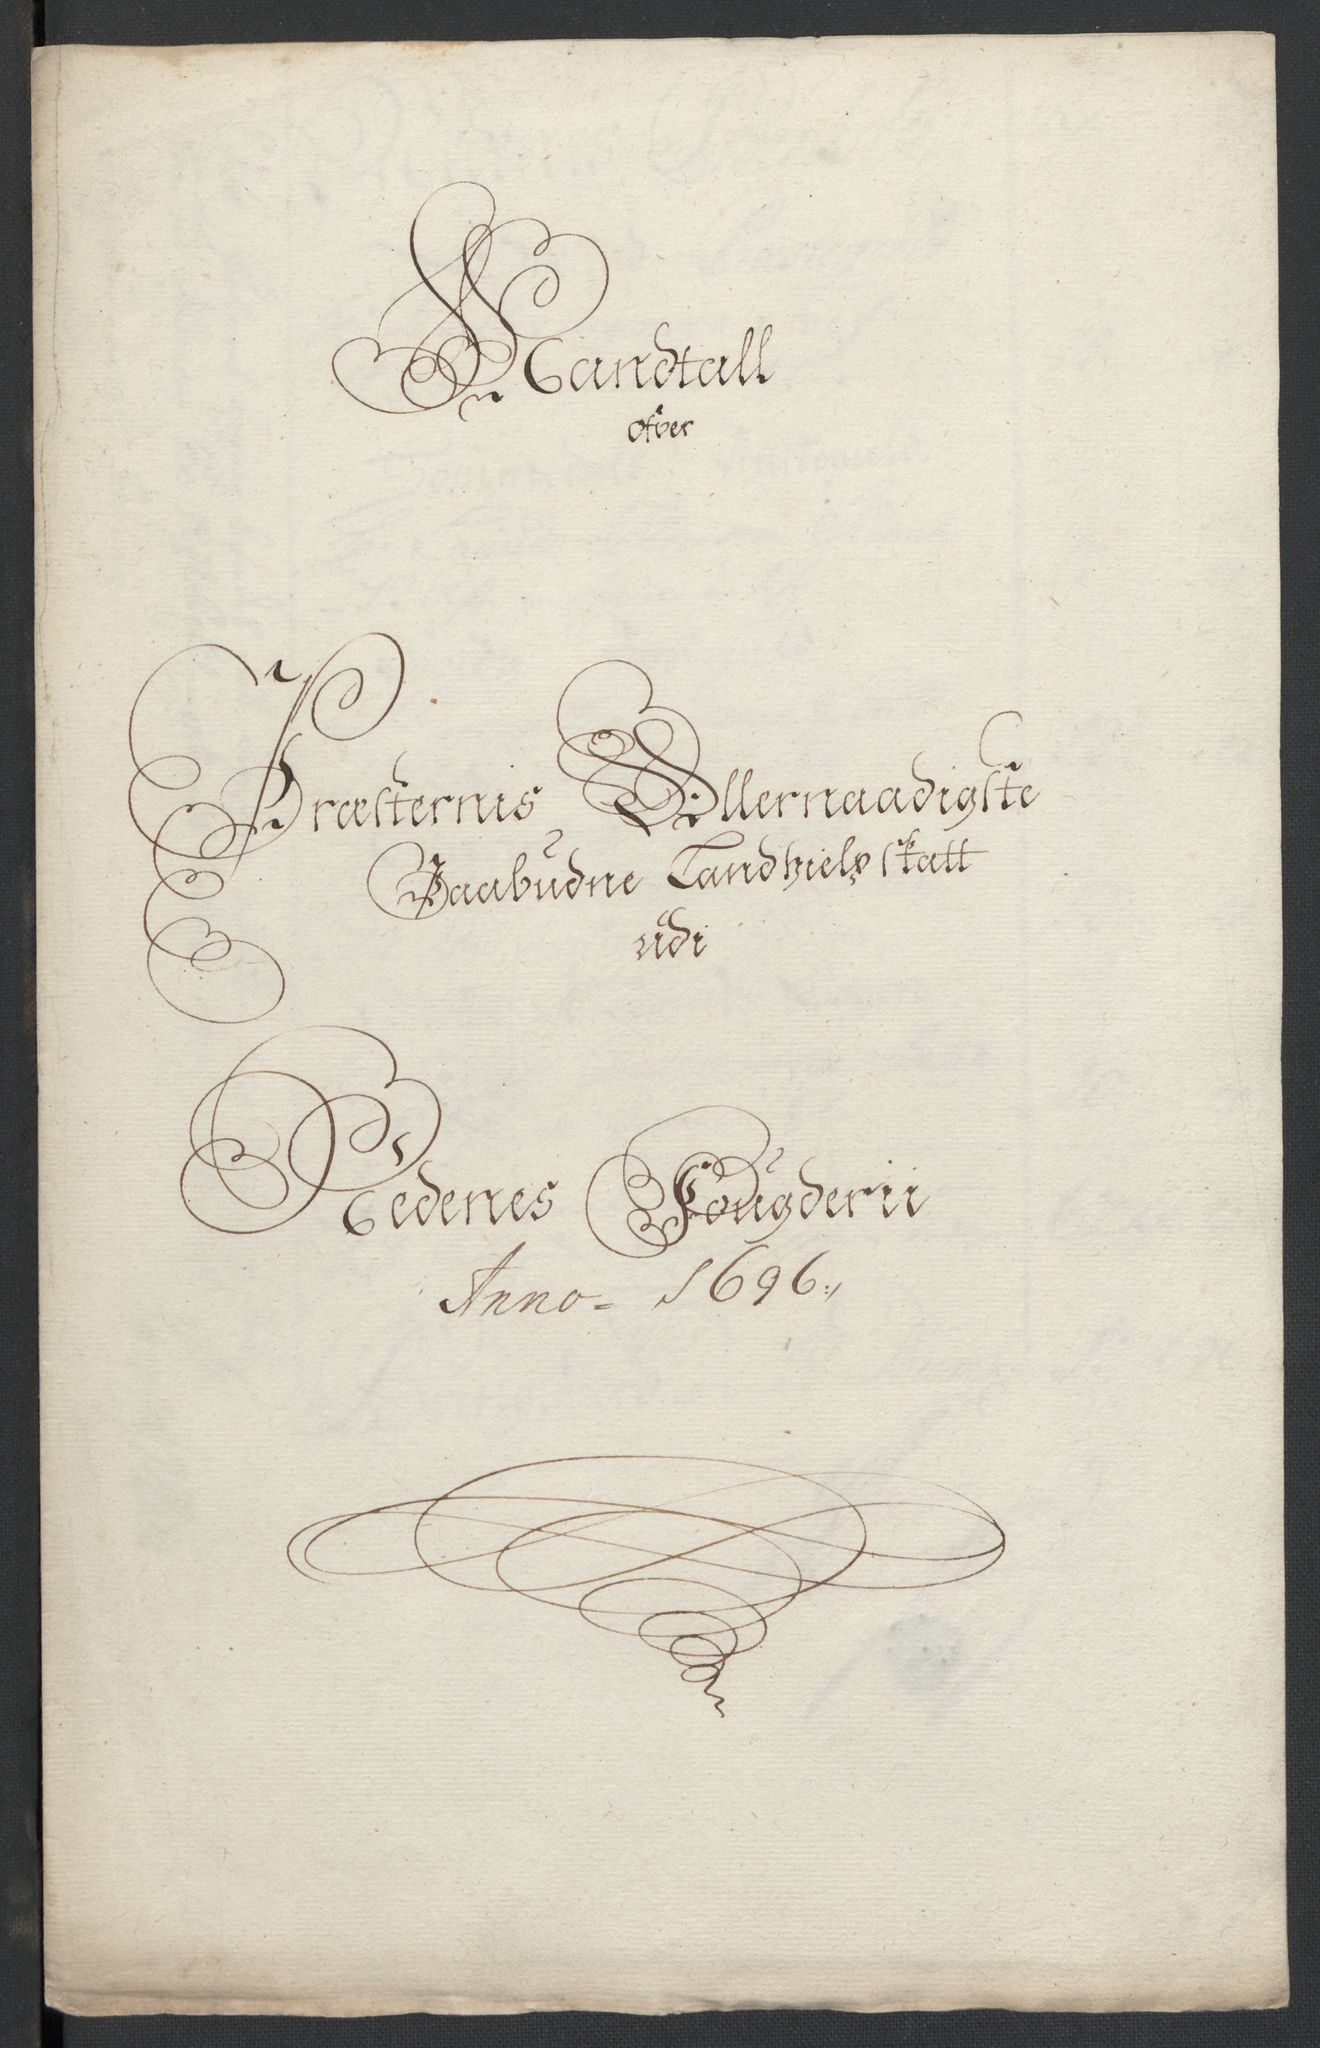 Mandtall
ofver
Præsternis Allernaadigste
Paabudne Landhielpskatt
udi
Nedenes Fougderii
Anno - 1696